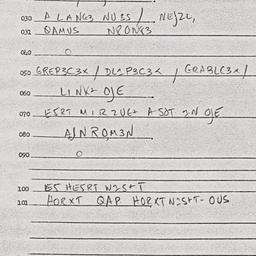 030 A LANG3 NUSS / NEJZL,
031 QAMUS NRONG3
040 O
050 GREP3C3X / DLSP3C3X / GRABLC3X/
060 LINKZ OJE
070 ESRT MIRZUGZ A SOT IN OJE
080 AJNROM3N
090 O
100 ES HESRT W2S+T
101 HORXT QAP HORXTNIS+T-OUS